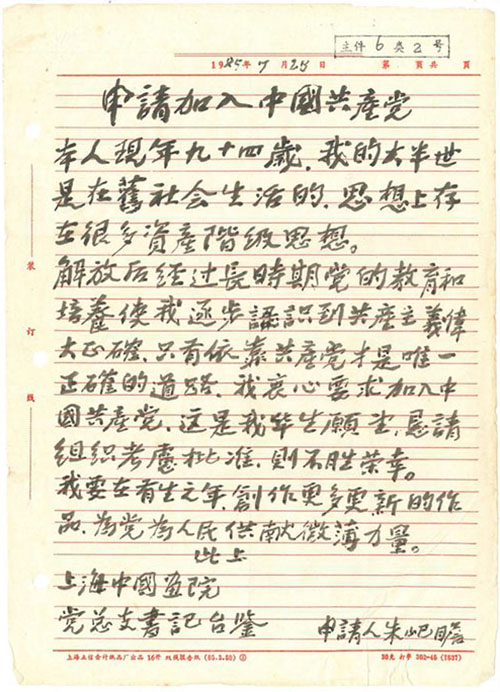 主件6类2号
1985年7月25日 第 页共 页
申請加入中國共產党
本人現年九十四歲，我的大半世
是在舊社会生活的，思想上存
在很多資產階级思想。
解放后经过長時期党的教育和
培養使我逐步認識到共產主義偉
大正確，只有依靠共產党才是唯一
正確的道路，我衷心要求加入中
國共產党，这是我毕生願望，恳請
组织考慮批准，則不胜荣幸。
我要在有生之年，創作更多更新的作
品，為党為人民供献微薄力量。
此上
上海中國画院
党总支書記台鉴
申請人朱屺瞻
装
订
线
上海立信会计纸品厂出品 16开 双线报告纸 (85.3.80) ②